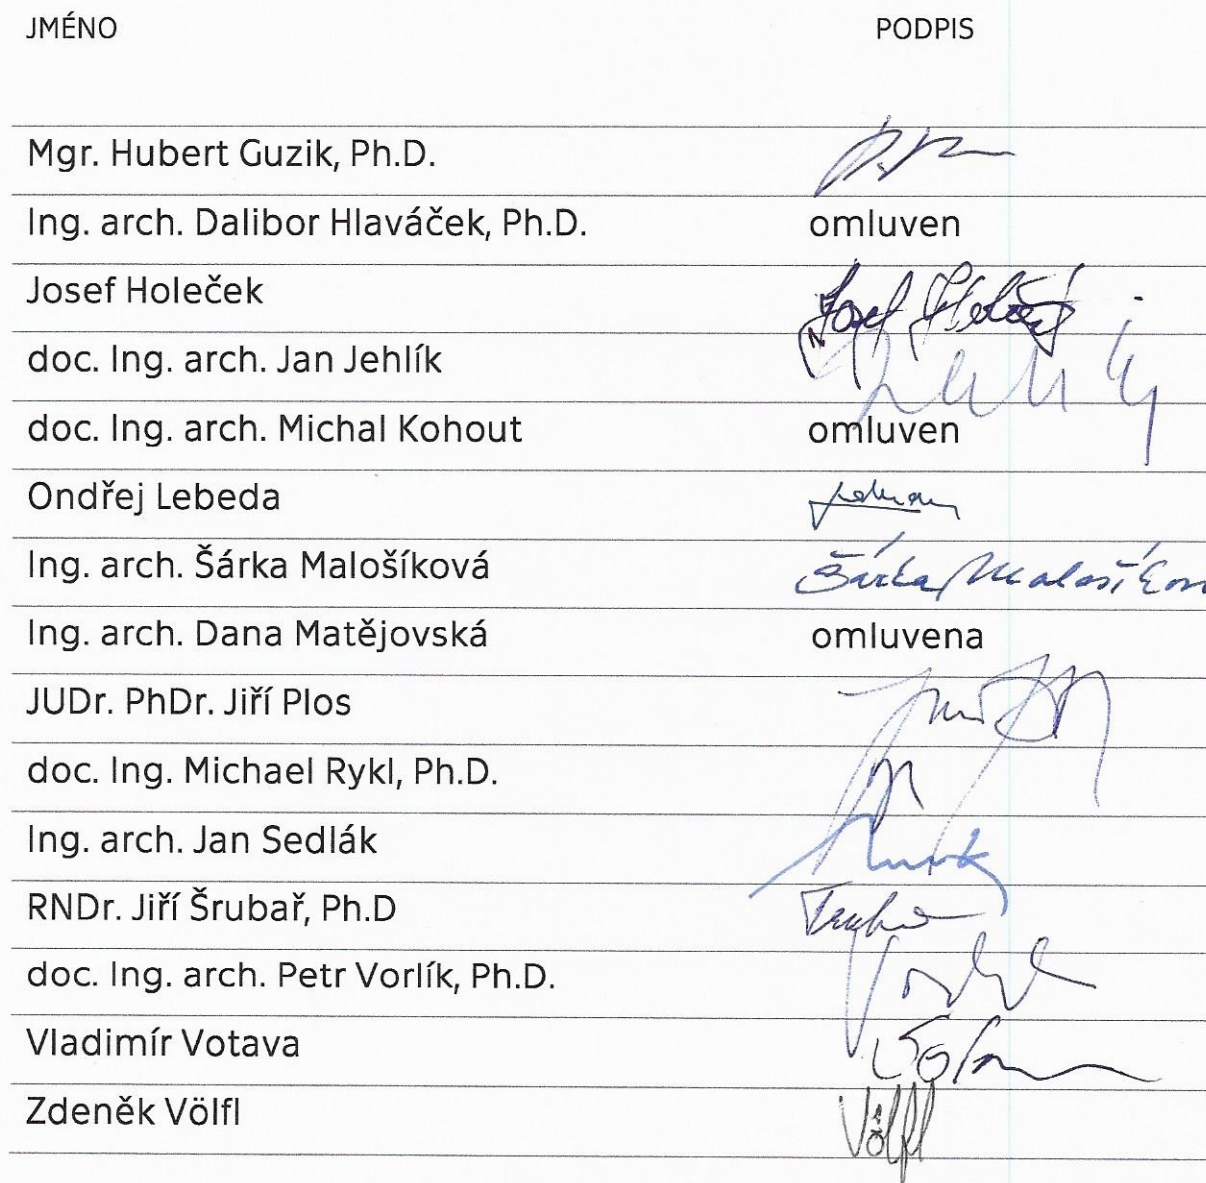 JMÉNO PODPIS
Mgr. Hubert Guzik, Ph.D.
Ing. arch. Dalibor Hlaváček, Ph.D. omluven
Josef Holeček Josef Holeček
doc. Ing. arch. Jan Jehlík
doc. Ing. arch. Michal Kohout omluven
Ondřej Lebeda
Ing. arch. Šárka Malošíková Šárka Malošíkov
Ing. arch. Dana Matějovská omluvena
JUDr. PhDr. Jiří Plos
doc. Ing. Michael Rykl, Ph.D.
Ing. arch. Jan Sedlák
RNDr. Jiří Šrubař, Ph.D
doc. Ing. arch. Petr Vorlík, Ph.D.
Vladimír Votava
Zdeněk Völfl Völfl